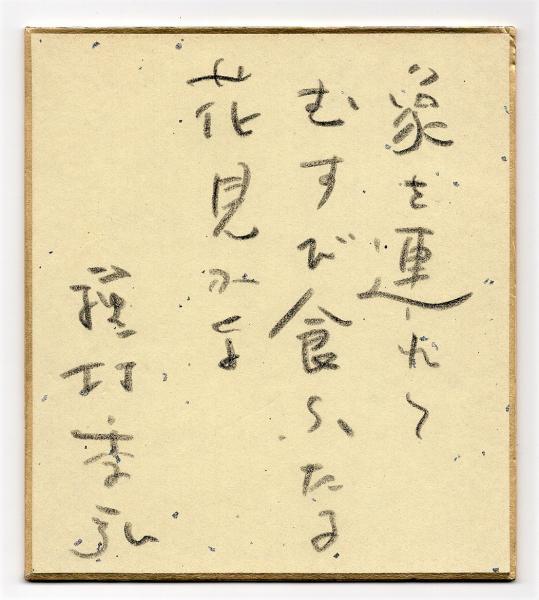 象を連れて
むすび食ふたる
花見かな
種村季弘